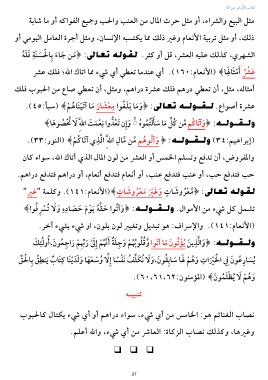 كتاب الأرض من الله
مثل البيع والشراء، أو مثل حرث المال من العنب والحب وجميع الفواكه أو ما شابة
ذلك، أو مثل تربية الأنعام وغير ذلك مما يكتسبه الإنسان، ومثل أجرة العامل اليومي أو
الشهري، كذلك عليه العشر، قل أو كثر. لقوله تعالى: ﴿مَن جَاءَ بِالْحَسَنَةِ فَلَهُ
عَشْرُ أَمْثَالِهَا﴾ (الأنعام: ١٦٠). أي عندما تعطي أي شيء مما اتاك الله، فلك عشر
أمثاله، مثل، أن تعطي درهم فلك عشرة دراهم، ومثل، أن تعطي صاع من الحبوب فلك
عشرة أصواع. لقوله تعالى: ﴿وَمَا بَلَغُوا مِعْشَارَ مَا آتَيْنَاهُمْ﴾ (سبأ: ٤٥).
ولقوله: ﴿وَآتَاكُم مِّن كُلِّ مَا سَأَلْتُمُوهُ وَإِن تَعُدُّوا نِعْمَتَ اللَّهِ لَا تُحْصُوهَا﴾
(إبراهيم: ٣٤) ولقوله: ﴿وَآتُوهُم مِّن مَّالِ اللَّهِ الَّذِي آتَاكُمْ﴾ (النور: ٣٣).
والمفروض، أن تدفع وتسلم الخمس أو العشر من لون المال الذي أتاك الله، سواء كان
حب فتدفع حب، أو عنب فتدفع عنب، أو أنعام فتدفع أنعام، أو دراهم فتدفع دراهم.
لقوله تعالى: ﴿مَعْرُوشَاتٍ وَغَيْرَ مَعْرُوشَاتٍ﴾ (الأنعام: ١٤١). وكلمة "غير"
تشمل كل شيء من الأموال. ولقوله: ﴿وَآتُوا حَقَّهُ يَوْمَ حَصَادِهِ وَلَا تُسْرِفُوا﴾
(الأنعام: ١٤١). والإسراف: هو تبديل وتغيير لون بلون، أو شيء بشيء آخر.
ولقوله: ﴿وَالَّذِينَ يُؤْتُونَ مَا آتَوا وَّقُلُوبُهُمْ وَجِلَةٌ أَنَّهُمْ إِلَى رَبِّهِمْ رَاجِعُونَ، أُولَٰئِكَ
يُسَارِعُونَ فِي الْخَيْرَاتِ وَهُمْ لَهَا سَابِقُونَ، وَلَا نُكَلِّفُ نَفْسًا إِلَّا وُسْعَهَا وَلَدَيْنَا كِتَابٌ يَنطِقُ بِالْحَقِّ
وَهُمْ لَا يُظْلَمُونَ﴾ (المؤمنون: ٦٠،٦١،٦٢).
تنبيه
نصاب الغنائم هو: الخامس من أي شيء، سواء دراهم أو أي شيء يكتال كالحبوب
وغيرها، وكذلك نصاب الزكاة: العاشر من أي شيء، والله أعلم.
37